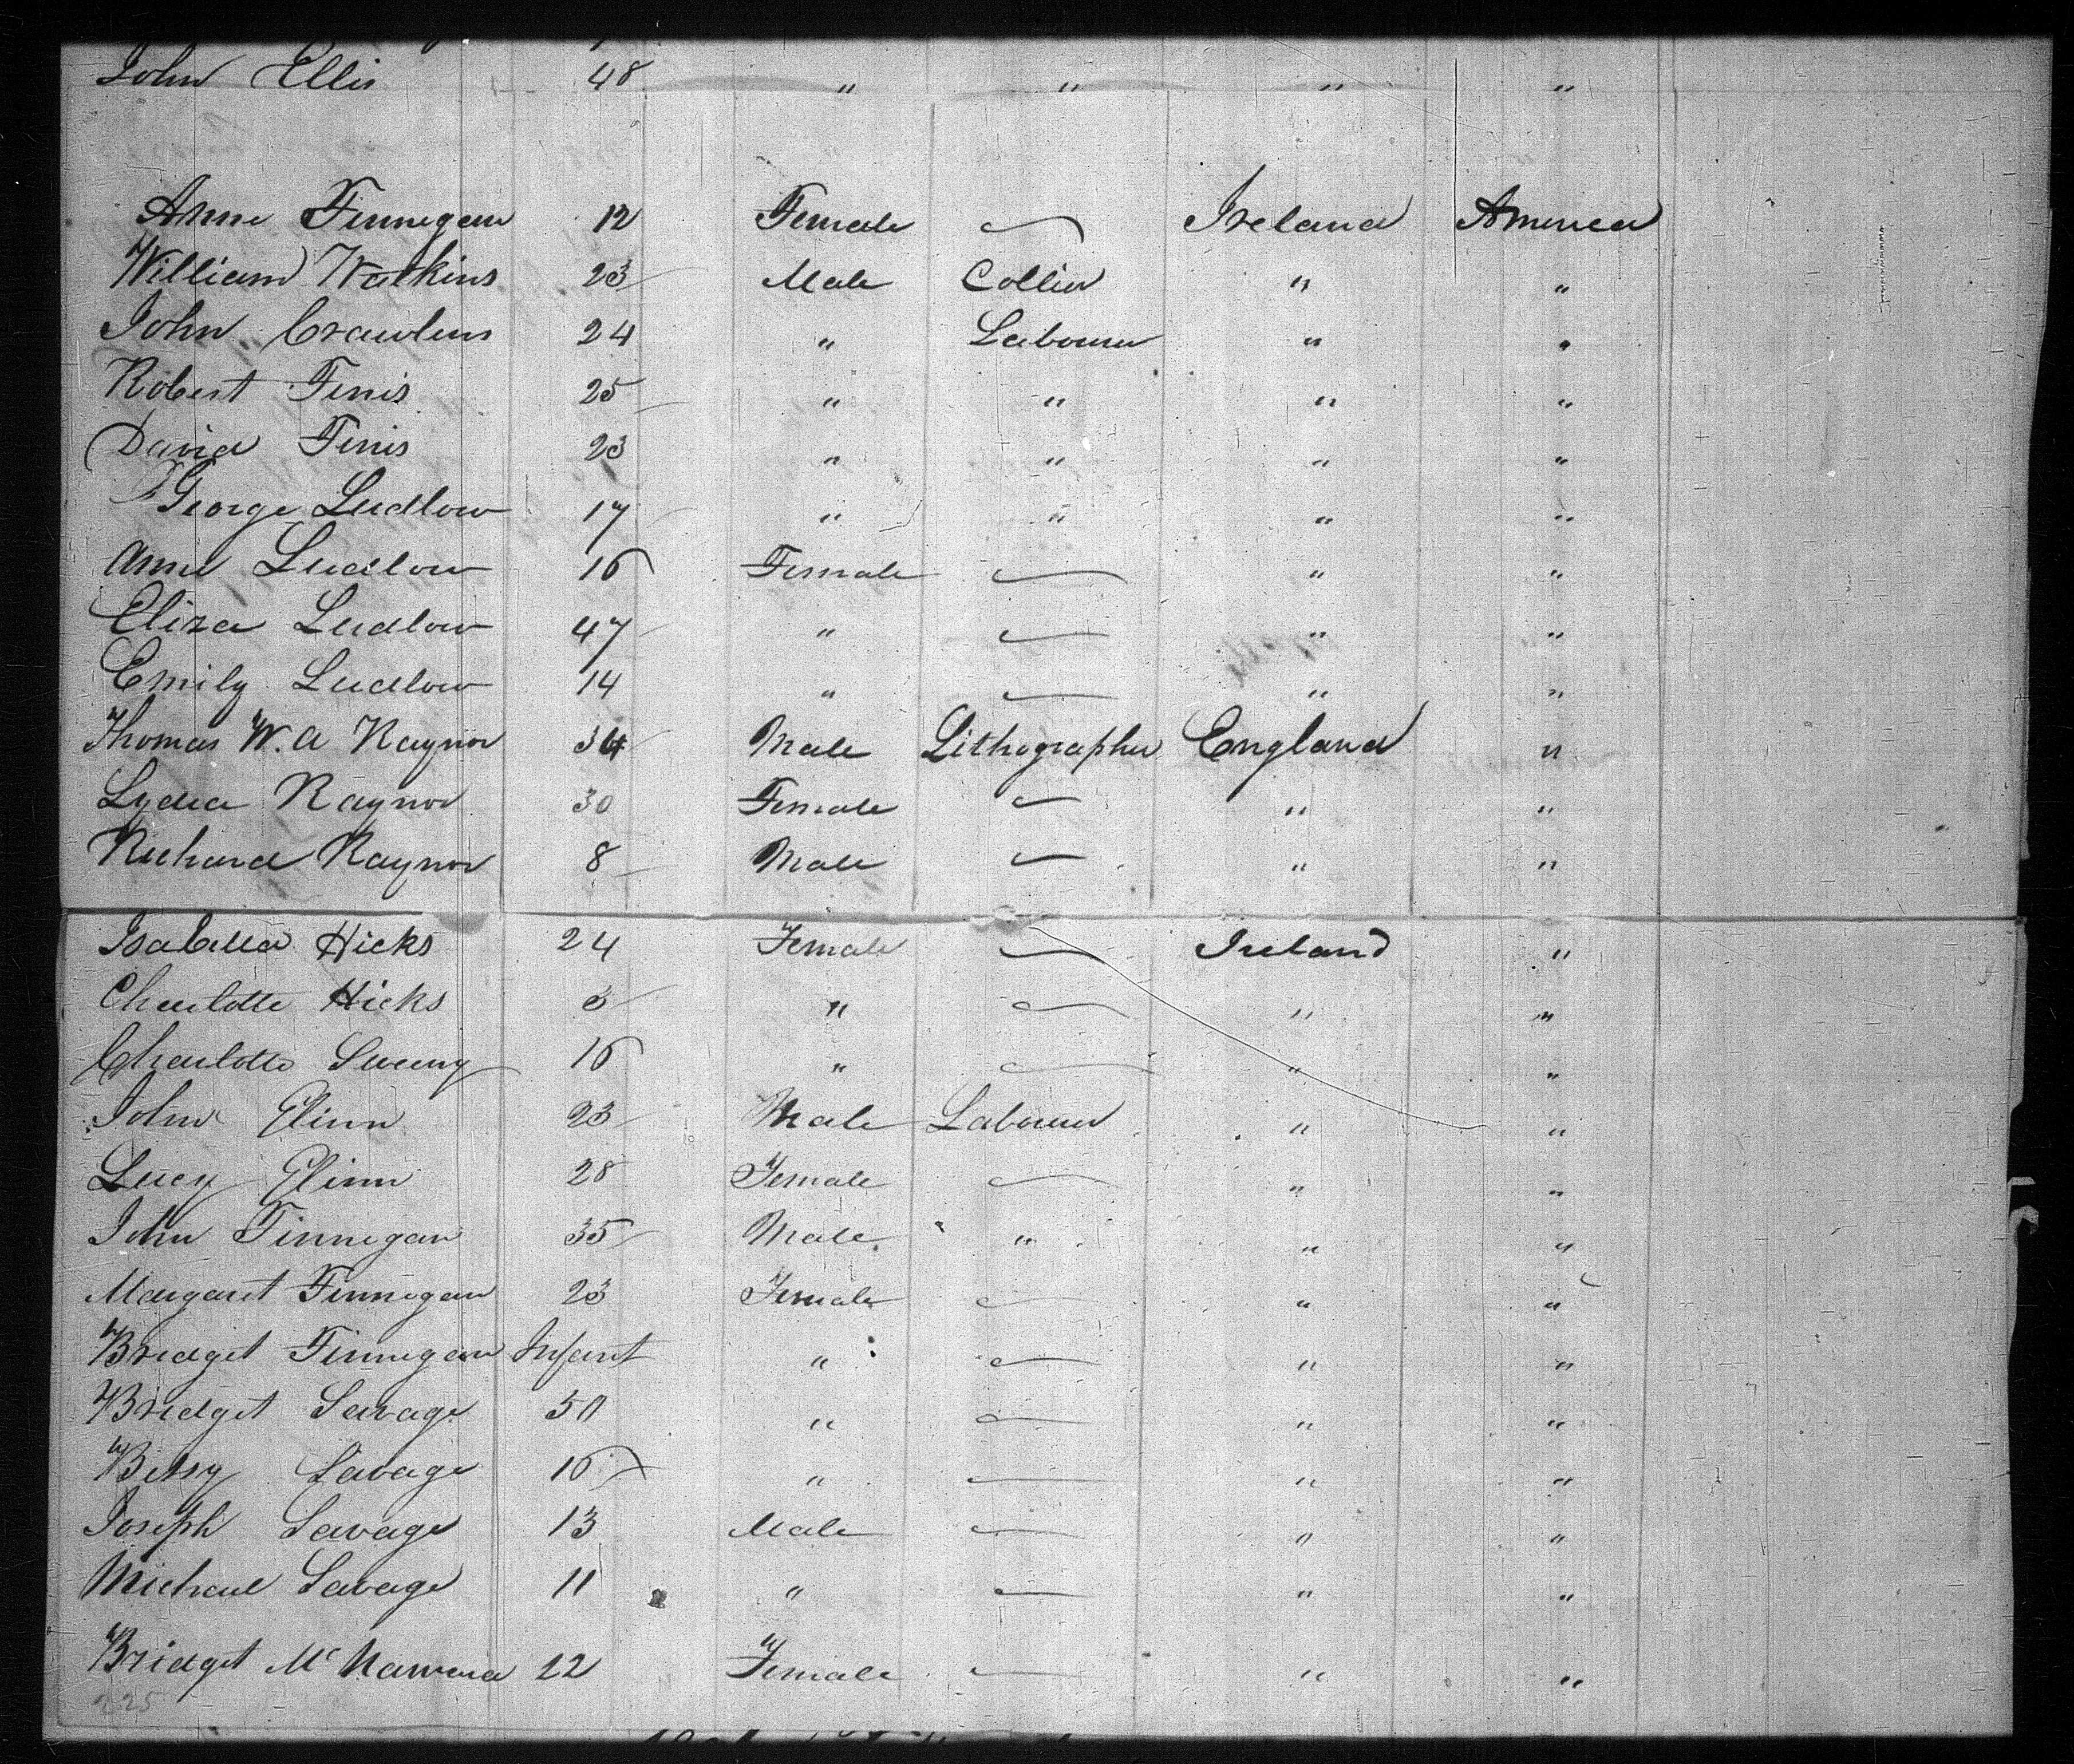 John Ellis 48 " " " "
Anne Finnegan 12 Female — Ireland America
William Watkins 23 Male Collier " "
John Crawlins 24 " Labourer " "
Robert Ferris 25 " " " "
David Ferris 23 " " " "
George Ludlow 17 " " " "
Anne Ludlow 16 Female — " "
Eliza Ludlow 47 " — " "
Emily Ludlow 14 " — " "
Thomas W. A Raynor 34 Male Lithographer England "
Lydia Raynor 30 Female — " "
Richard Raynor 8 Male — " "
Isabella Hicks 24 Female — Ireland "
Charlotte Hicks " — " "
Charlotte Sweeny 16 " — " "
John Glinn 23 Male Labourer " "
Lucy Glinn 28 Female — " "
John Finnegan 35 Male " " "
Margaret Finnegan 23 Female — " "
Bridget Finnegan Infant " — " "
Bridget Savage 50 " — " "
Betsy Savage 16 " — " "
Joseph Savage 13 Male — " "
Michael Savage 11 " — " "
Bridget McNamara 22 Female — " "
225